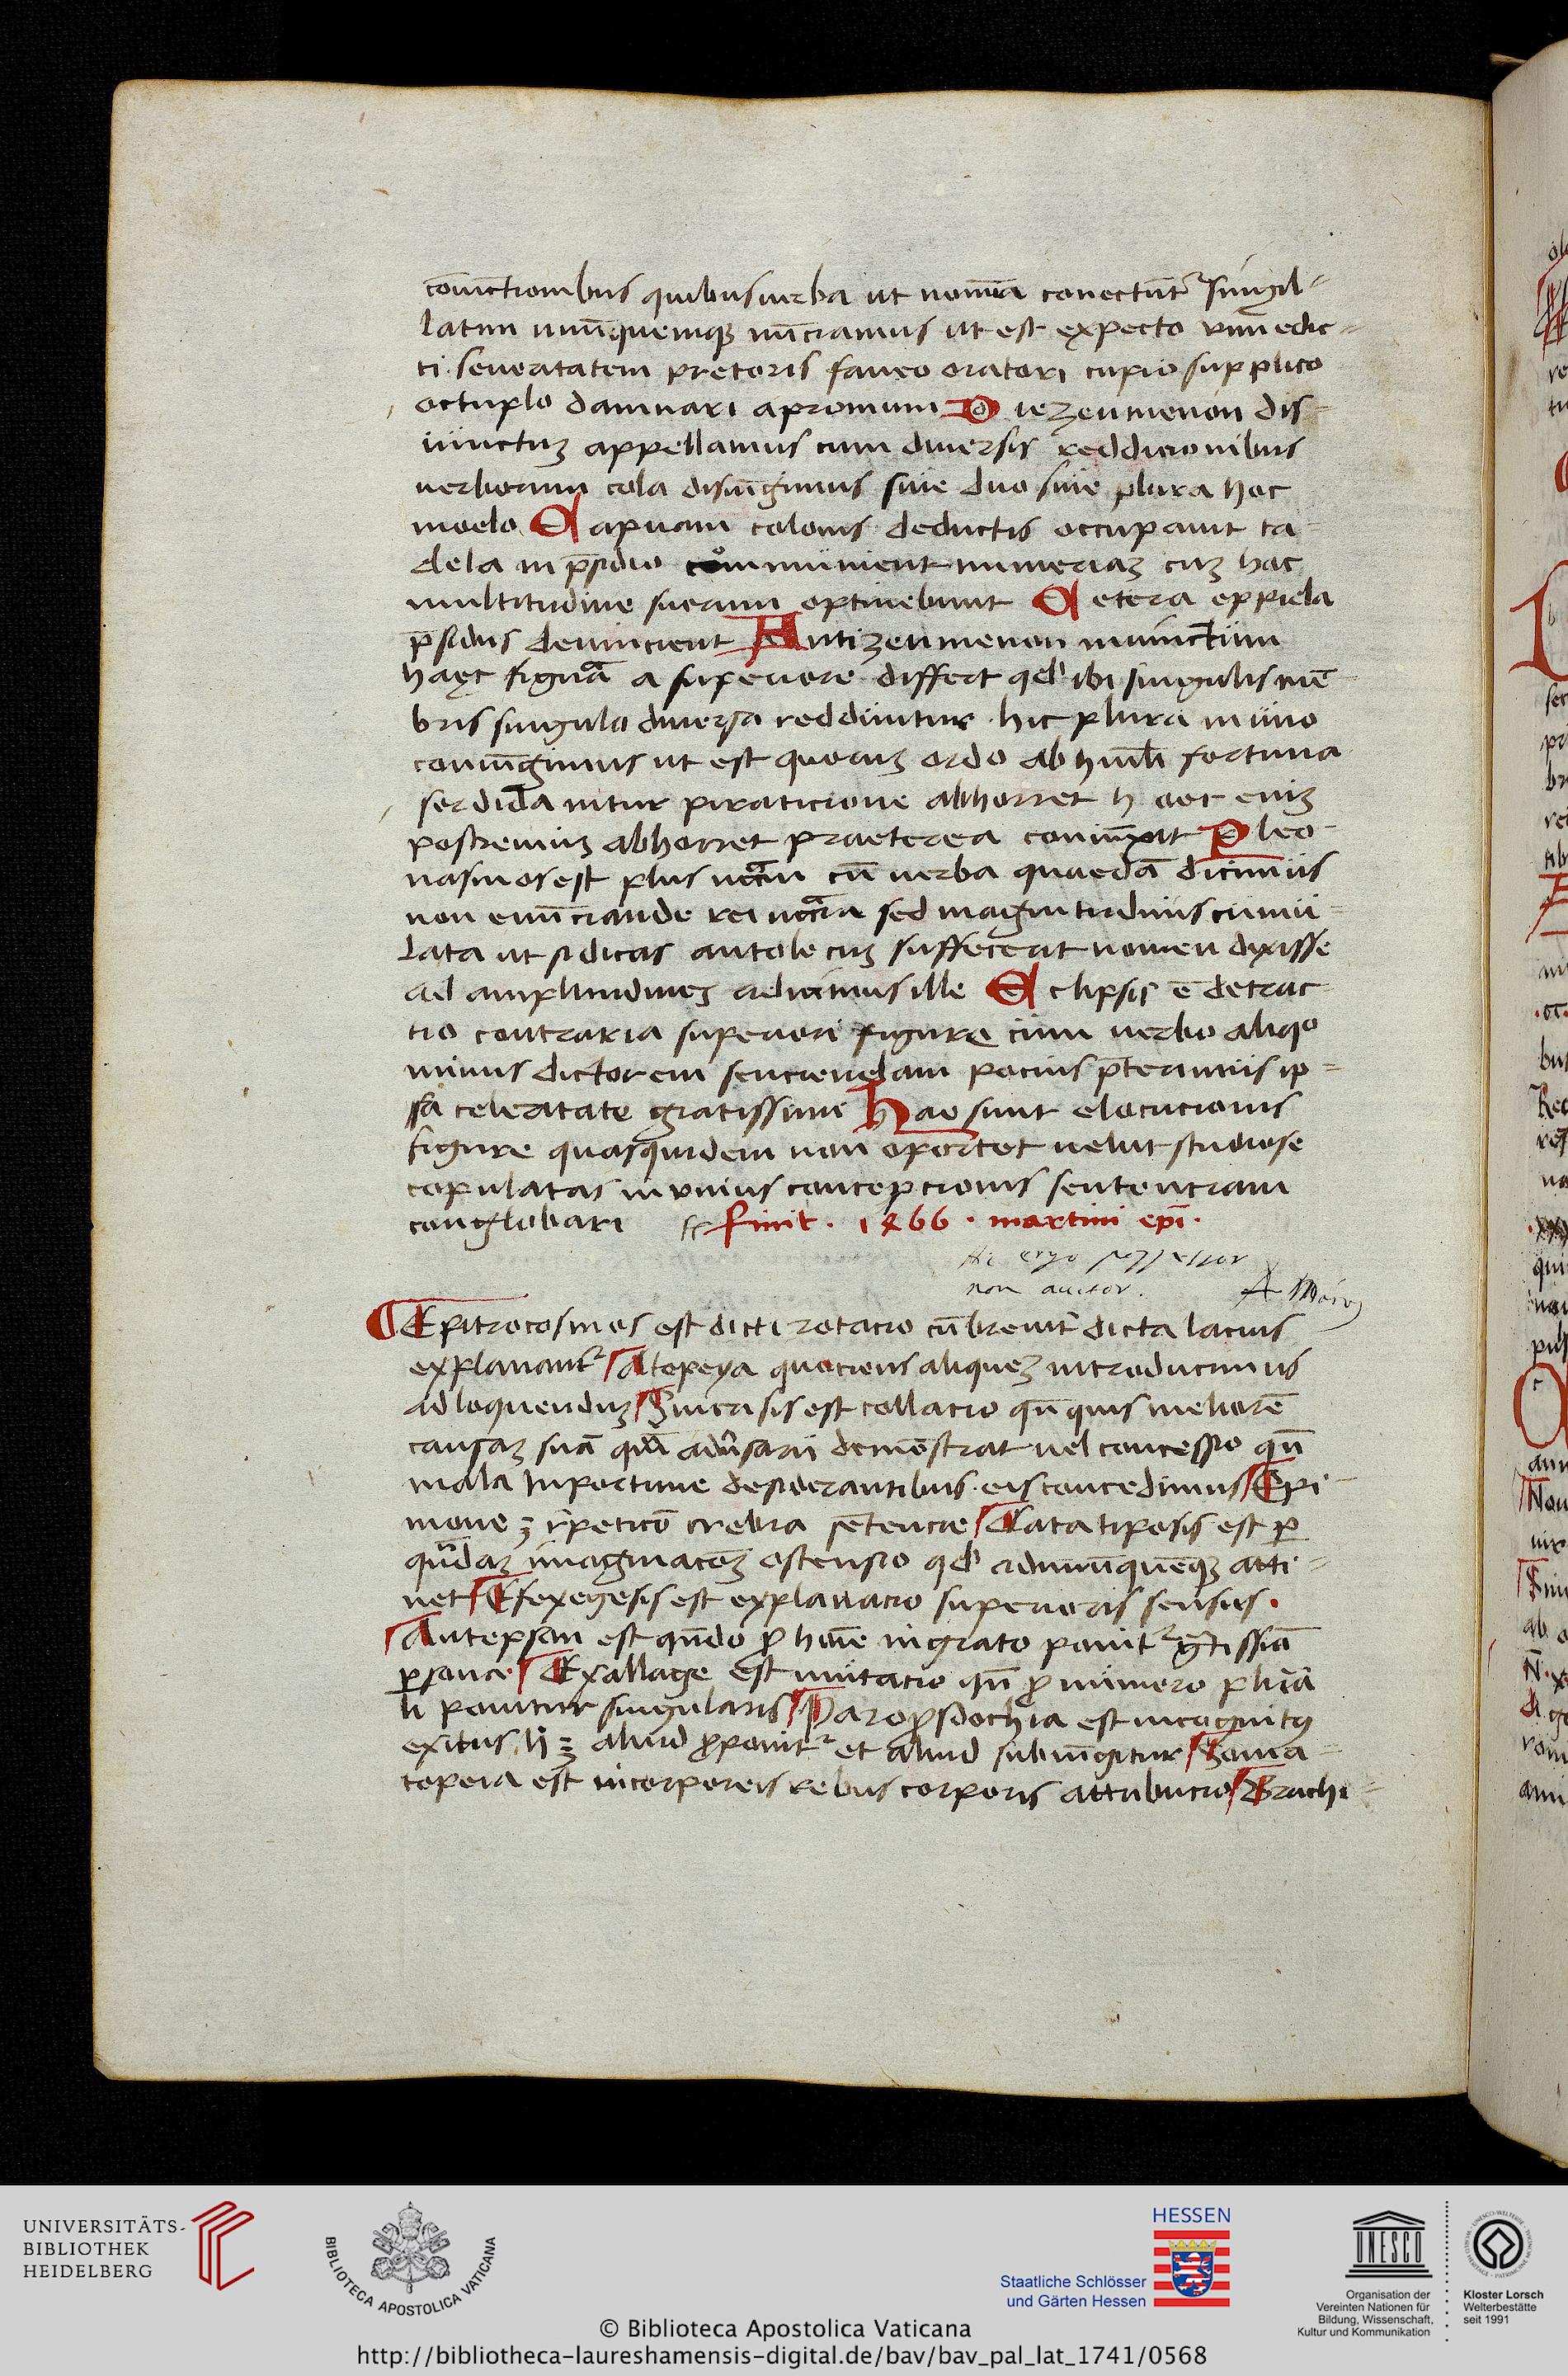 cōiūctionibus quibus uerba ut nomīa conectūt᷑ singil-
latim unūquemq₃ nūciamus ut est expecto vim edic-
ti seueritatem pretoris faueo oratori cupio supplico
octuplo damnari apronium Diezeumenon dis-
iunctuʒ appellamus cum diuersis reddicionibus
uerborum cola disiūgimus siue duo siue plura hoc
modo Capuam colonis deductis occupauit ca-
dela in p̄sidio com̊munient numeriaʒ cuʒ hac
multitudine suorum optinebunt Cetera oppida
p̄sidiis deuincient Antizeumenon iniunctum
haec figurā a superiore differt qd' ibi singulis mē-
bris singula diuersa redduntur hic plura in uno
coniūgimus ut est quoruʒ ordo ab humīlī fortuna
sordida nitur piraticione abhorret hoc eniʒ
postremuʒ abhorret praeterea coniūxit Pleo-
nasmos est plus nccām cū uerba quaedā dicimus
non enūciande rei nccāria sed magnitudinis cumu-
lata ut si dicas antole cuʒ suffecerit nomen dixisse
ad amplitudineʒ adicimus ille Eclipsis ē detrac-
tio contraria superiori figure cum uerbo aliqo
minus dictorem senciendam pocius p̄terimus ip-
sa celeritate gratissimi Hae sunt elocucionis
figure quas quidem non oportet uelut studiose
copulatas in unius concepcionis sentenciam
conglobari finit. 1466. martini ep̄i.
ergo possessor
non auctor.
¶Epitrocosmos est dicti rotacio cū breuit᷑ dicta lacius
explanant᷑ Atopeya quociens alique₃ introducimus
ad loquenduʒ Sincrisis est collacio qn̄ quis meliorē
causaʒ suā quā adu᷑sarii demōstrat uel concessio qn̄
mala inportune desiderantibus eis concedimus Epi-
mone ʒ r̄peticō crebra sētencie Catatiposis est p̱
qn̄daʒ imaginacōʒ ostensio qd' ad unūquēq₃ atti-
net Efexegesis est explanacio superioris sensus.
Antepsan est qn̄do ꝓ hōīe ingrato ponit᷑ gr̄tissiā
p̱sonae Exallage est mutacio qn̄ ꝓ numero plurā-
li ponitur singularis Paroꝓsdochia est incognitꝰ
exitus .h̄. ʒ aliud ꝓponit᷑ et aliud subiūgitur Soma-
topeia est incorporeis rebus corporis attribucio Brachi-
UNIVERSITÄTS-
BIBLIOTHEK
HEIDELBERG
BIBLIOTECA APOSTOLICA VATICANA
HESSEN
Staatliche Schlösser
und Gärten Hessen
UNESCO
Organisation der
Vereinten Nationen für
Bildung, Wissenschaft,
Kultur und Kommunikation
Kloster Lorsch
Welterbestätte
seit 1991
© Biblioteca Apostolica Vaticana
http://bibliotheca-laureshamensis-digital.de/bav/bav_pal_lat_1741/0568